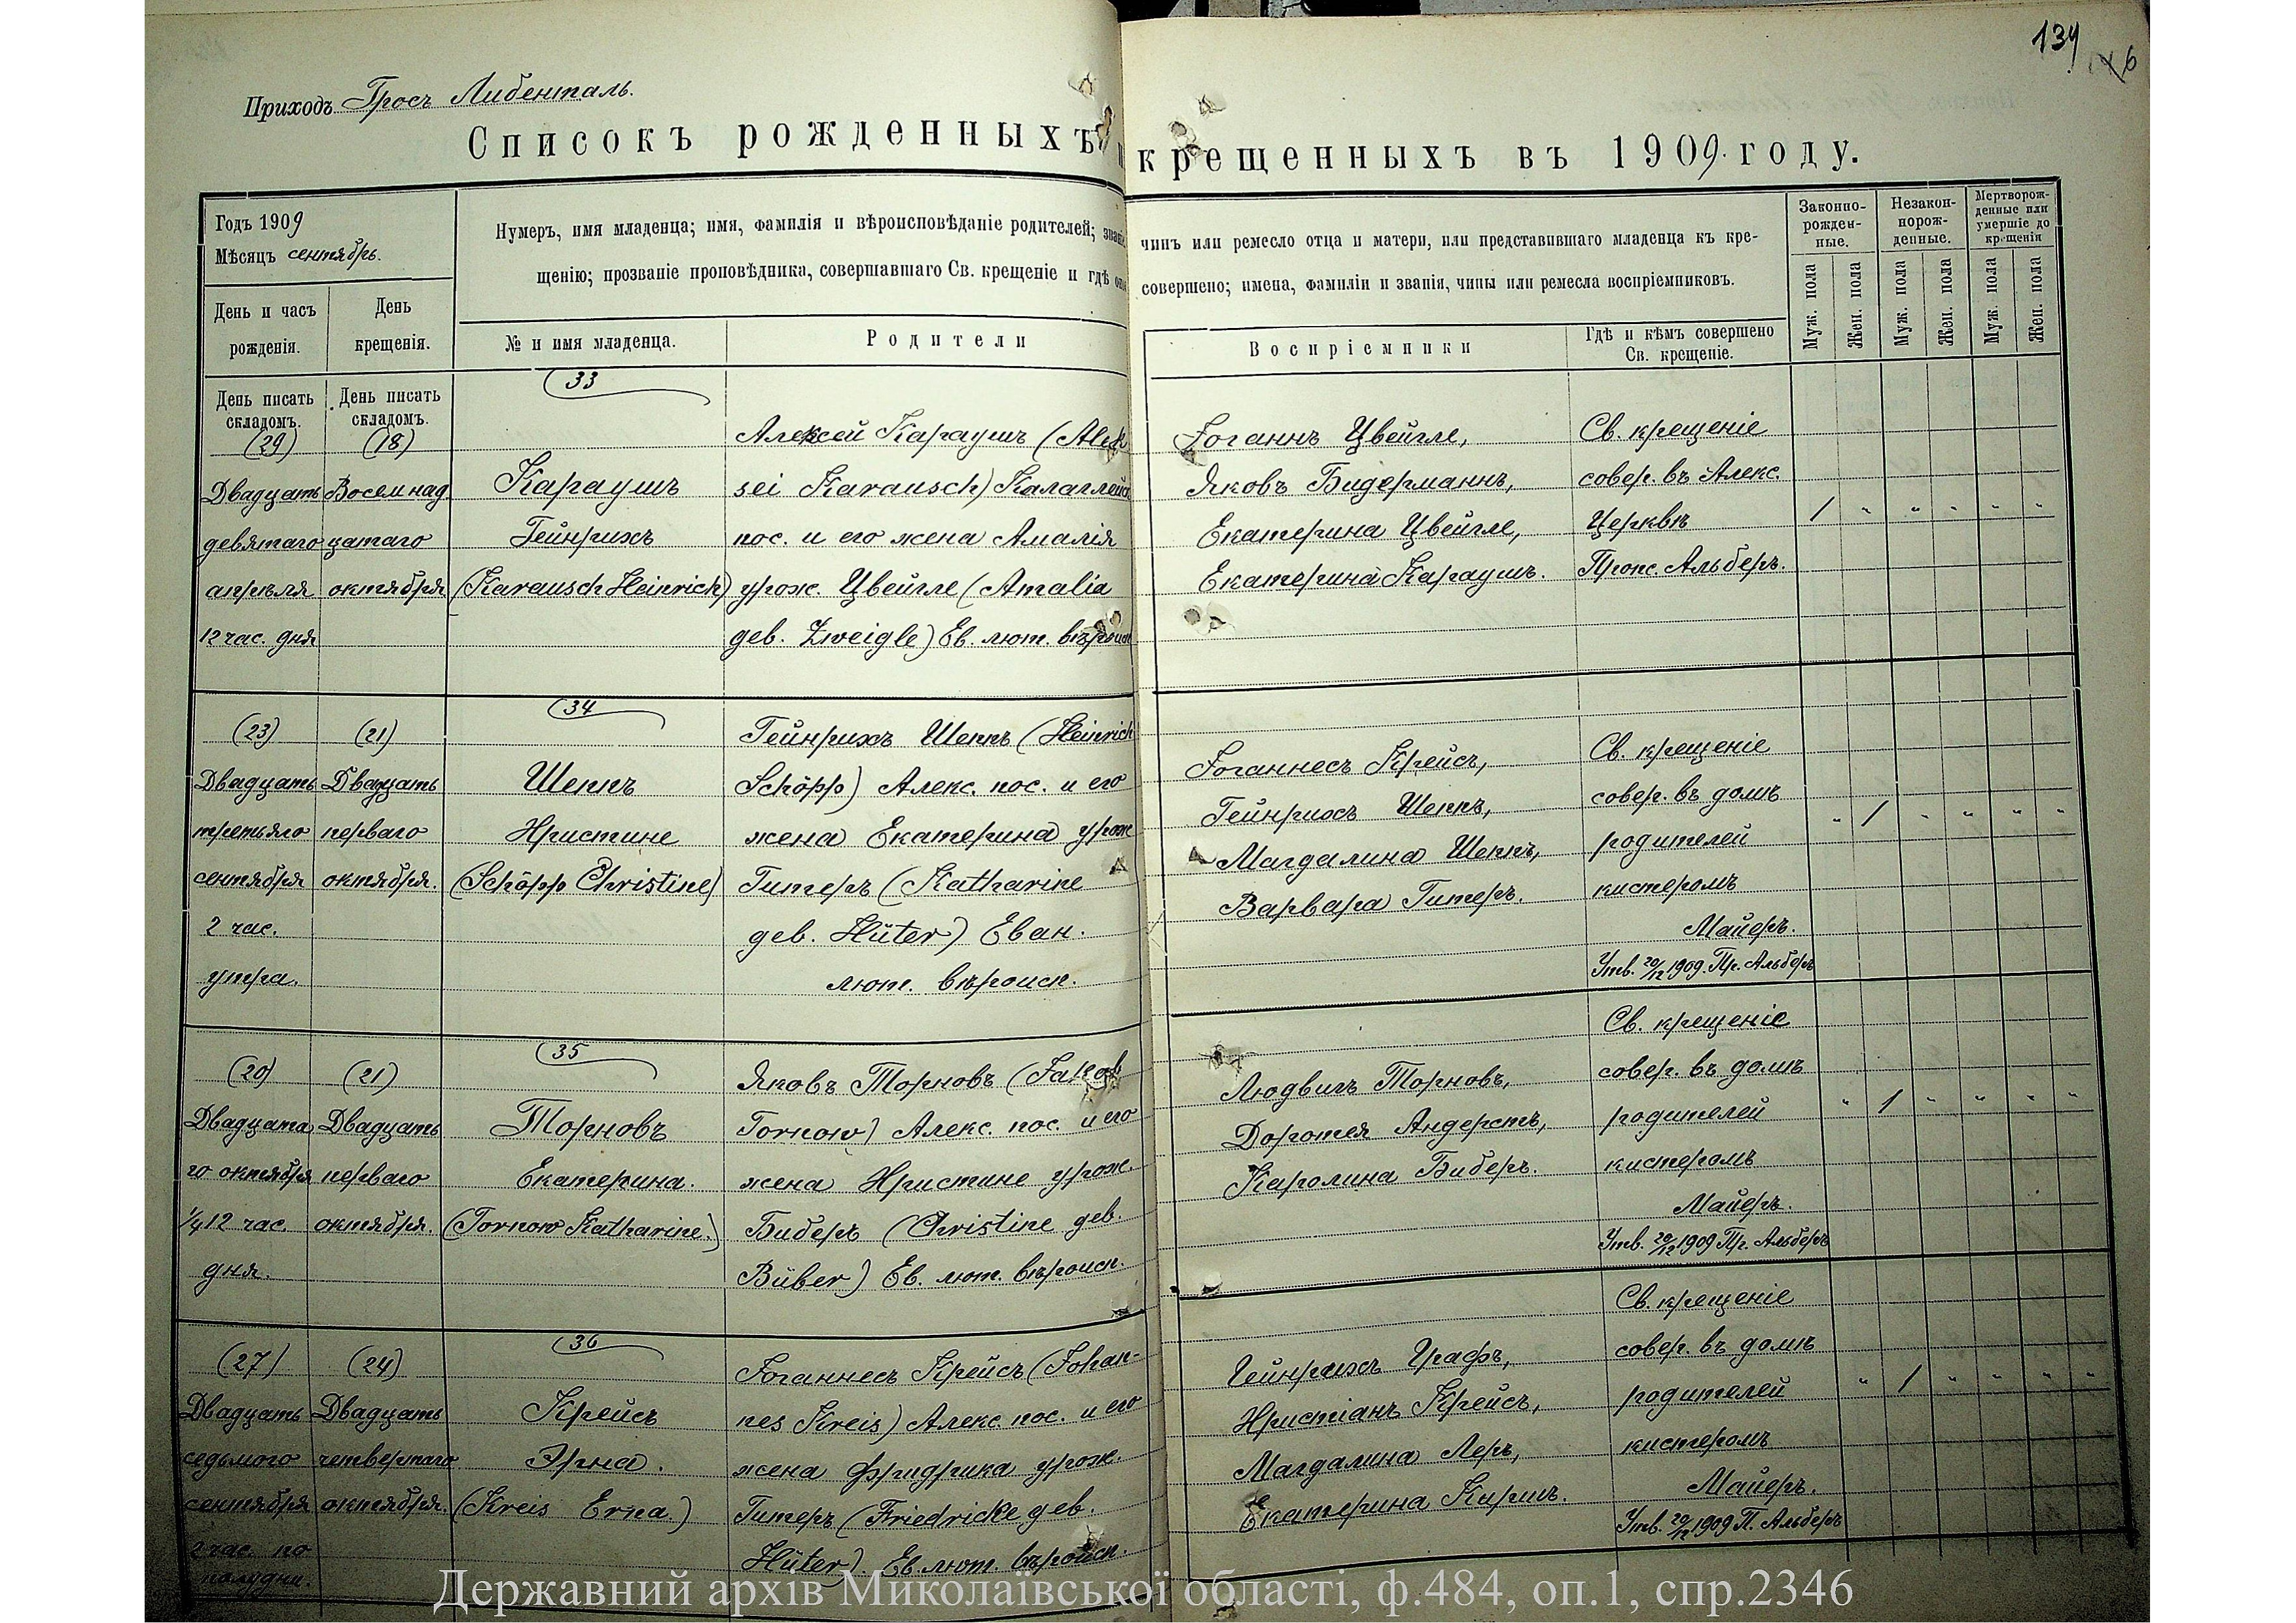 134
6
Приходъ Гросъ Либенталь.
Списокъ рожденныхъ и крещенныхъ въ 1909 году.
Годъ 1909
Мѣсяцъ сентябрь.
Нумеръ, имя младенца; имя, фамилія и вѣроисповѣданіе родителей; званіе, чинъ или ремесло отца и матери, или представившаго младенца къ кре-
щенію; прозваніе проповѣдника, совершавшаго Св. крещеніе и гдѣ оное совершено; имена, фамиліи и званія, чины или ремесла воспріемниковъ.
Законно-
рожден-
ные.
Незакон-
норож-
денные.
Мертворож-
денные или
умершіе до
крещенія
День и часъ
рожденія.
День
крещенія.
№ и имя младенца.
Родители
Воспріемники
Гдѣ и кѣмъ совершено
Св. крещеніе.
Муж. пола
Жен. пола
Муж. пола
Жен. пола
Муж. пола
Жен. пола
День писать
складомъ.
День писать
складомъ.
(29)
Двадцать
девятаго
апрѣля
12 час. дня
(18)
Восемнад
цатаго
октября
33
Караушъ
Гейнрихъ
(Karausch Heinrich)
Алексей Караушъ (Alek
sei Karausch) Калаглейск
пос. и его жена Амалія
урож. Цвейгле (Amalia
geb. Zweigle) Ев. лют. вѣроисп
Іоганнъ Цвейгле,
Яковъ Бидерманнъ,
Екатерина Цвейгле,
Екатерина Караушъ.
Св. крещеніе
совер. въ Алекс.
Церквѣ
Проп. Альберъ.
/ " " " " "
(23)
Двадцать
третьяго
сентября
2 час.
утра.
(21)
Двадцать
перваго
октября.
34
Шеппъ
Христине
(Schöpp Christine)
Гейнрихъ Шеппъ (Heinrich
Schöpp) Алекс. пос. и его
жена Екатерина урож
Гитеръ (Katharine
geb. Hüter) Еван.
лют. вѣроисп.
Іоганнесъ Крейсъ,
Гейнрихъ Шеппъ,
Магдалина Шеппъ,
Варвара Гитеръ.
Св. крещеніе
совер. въ домѣ
родителей
кистеромъ
Майеръ.
Утв. 20/12 1909. Пр. Альберъ
" / " " " "
(20)
Двадцата
го октября
1/4 12 час.
дня.
(21)
Двадцать
перваго
октября.
35
Торновъ
Екатерина.
(Tornow Katharine.)
Яковъ Торновъ (Jakob
Tornow) Алекс. пос. и его
жена Христине урож.
Биберъ (Christine geb.
Büber) Ев. лют. вѣроисп.
Людвигъ Торновъ,
Доротея Андерстъ,
Каролина Биберъ.
Св. крещеніе
совер. въ домѣ
родителей
кистеромъ
Майеръ.
Утв. 20/12 1909 Пр. Альберъ
" / " " " "
(27)
Двадцать
седьмого
сентября
2 час. по
полудни.
(24)
Двадцать
четвертаго
октября.
36
Крейсъ
Эрна.
(Kreis Erna.)
Іоганнесъ Крейсъ (Johan-
nes Kreis) Алекс. пос. и его
жена Фридрика урож.
Гитеръ (Friedricke geb.
Hüter). Ев. лют. вѣроисп.
Гейнрихъ Графъ,
Христіанъ Крейсъ,
Магдалина Леръ,
Екатерина Киршъ.
Св. крещеніе
совер. въ домѣ
родителей
кистеромъ
Майеръ.
Утв. 20/12 1909 П. Альберъ
" / " " " "
Державний архів Миколаївської області, ф.484, оп.1, спр.2346